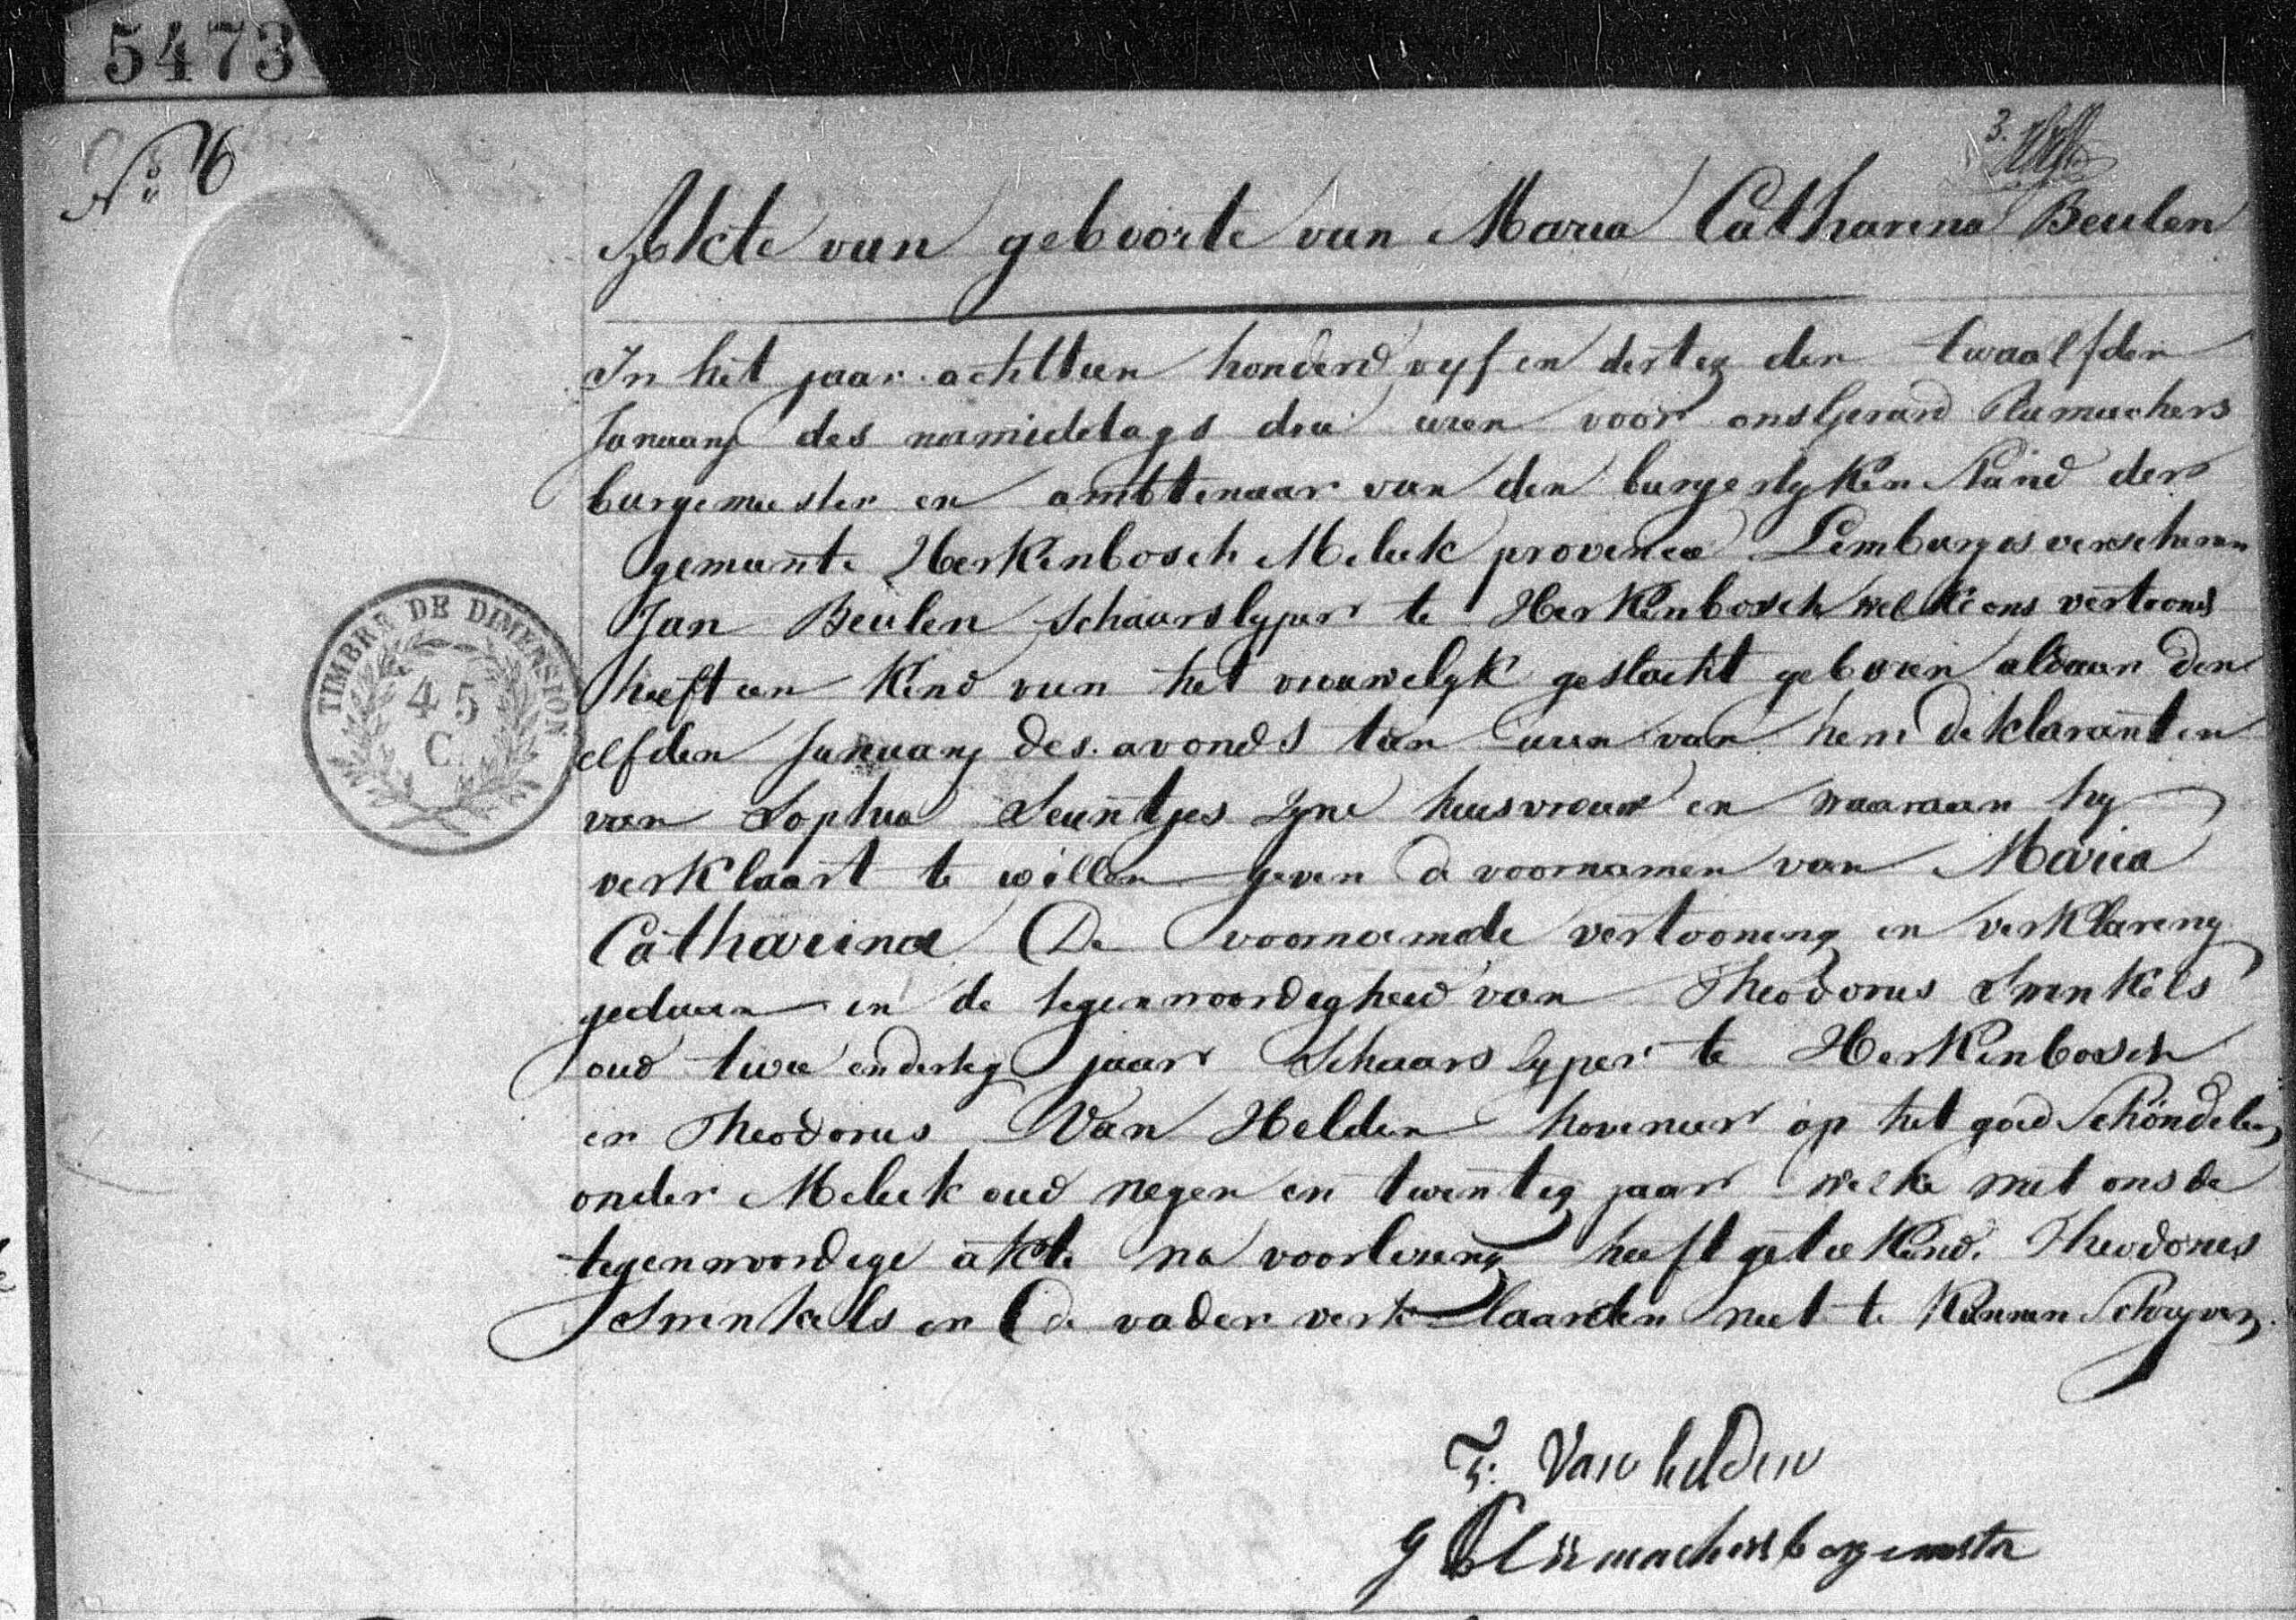 5473
No 6
3.
Akte van geboorte van Maria Catharina Beulen
In het jaar achttien honderd vyf en dertig den twaalfden
January des namiddags drie uren voor ons Gerard Plumachers
burgemeester en ambtenaar van den burgerlyken Stand der
gemeente Herkenbosch Melick provincie Limburg is verschenen
Jan Beulen Schaarslyper te Herkenbosch welke ons vertoond
heeft een Kind van het vrouwelyk geslacht geboren aldaar den
elfden January des avonds tien uren van hem deklarant en
van Sophia Teuntjes zyne huisvrouw en waaraan hy
verklaart te willen geven de voornamen van Maria
Catharina De voornoemde vertooning en verklaring
gedaan in de tegenwoordigheid van Theodorus Sminkels
oud twee en dertig jaar Schaarslyper te Herkenbosch
en Theodorus Van Helden hovenier op het goed Schöndelen
onder Melick oud negen en twintig jaar welke met ons de
tegenwoordige akte na voorlezing heeft geteekend. Theodorus
Sminkels en de vader verklaarden niet te Kunnen Schryven.
TIMBRE DE DIMENSION
45
C.
T. Van helden
G Plümachers borgemester